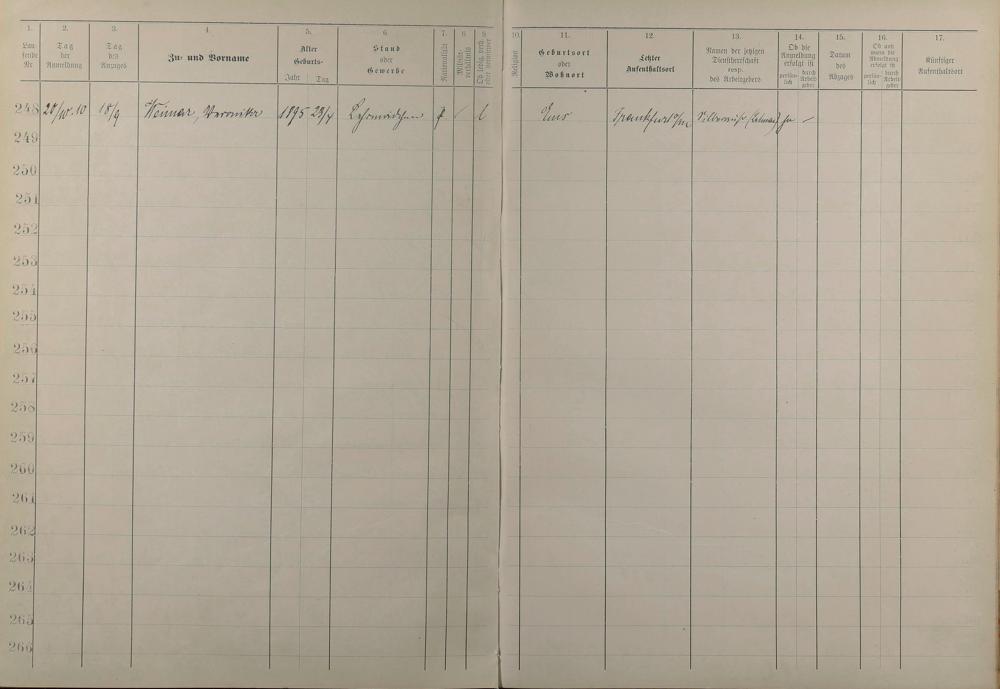 1. 2. 3. 4. 5. 6. 7. 8. 9. 10. 11. 12. 13. 14. 15. 16. 17.
Lau-
fende
Nr
Tag
der
Anmeldung
Tag
des
Anzuges
Zu- und Vorname
Alter
Geburts-
Jahr Tag
Stand
oder
Gewerbe
Nationalität
Militär-
verhältnis
Ob ledig, verh.
oder
Religion
Geburtsort
oder
Wohnort
Letzter
Aufenthaltsort
Namen der jetzigen
Dienstherrschaft
resp.
des Arbeitgebers
Ob die
Anmeldung
erfolgt ist
persön-
lich
durch
Arbeit
geber
Datum
des
Abzuges
Ob und
wann die
Abmeldung
erfolgt ist
persön-
lich
durch
Arbeit
geber
Künftiger
Aufenthaltsort
248 20/10.10 18/9 Weimar, Veronika 1895 23/4 Lehrmädchen l Ems Frankfurt a/M ja
249
250
251
252
253
254
255
256
257
258
259
260
261
262
263
264
265
266